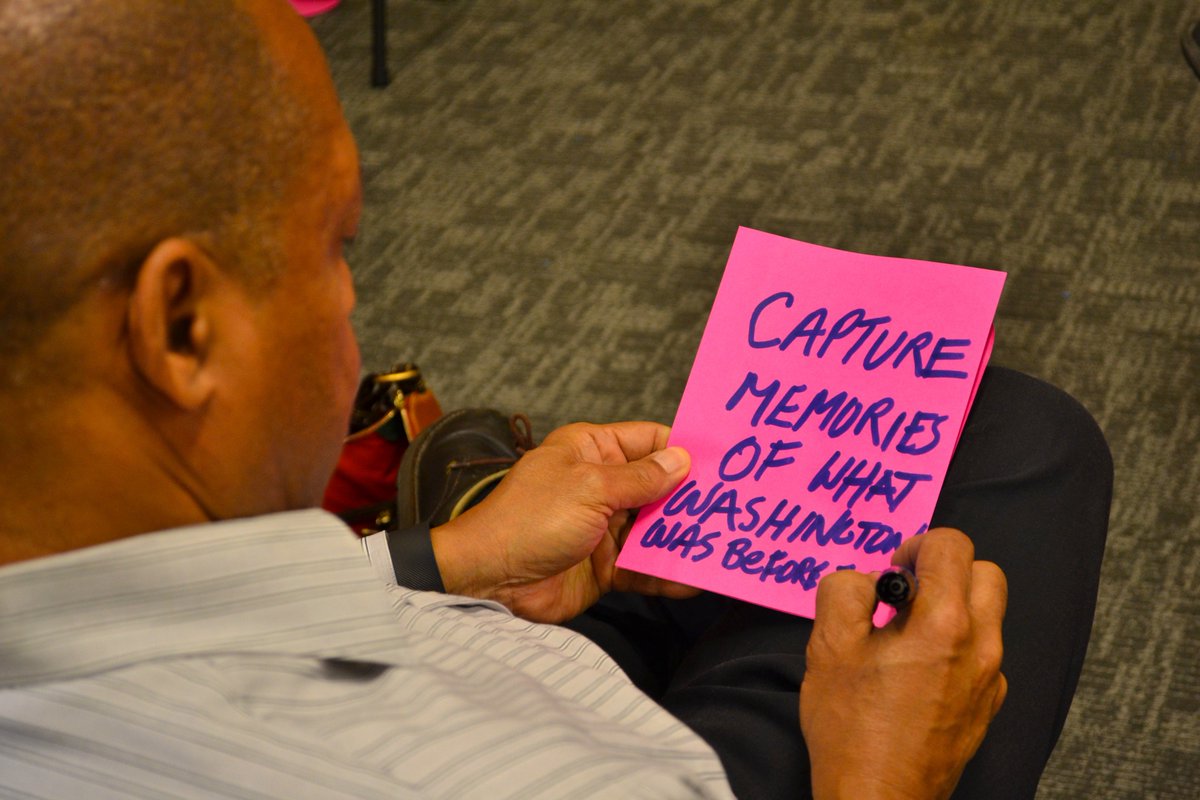 CAPTURE
MEMORIES
OF WHAT
WASHINGTON
WAS BEFORE